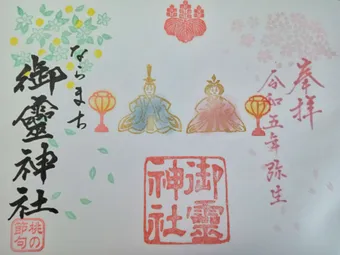 奉拝
令和五年弥生
御靈神社
ならまち
御靈神社
桃の節句